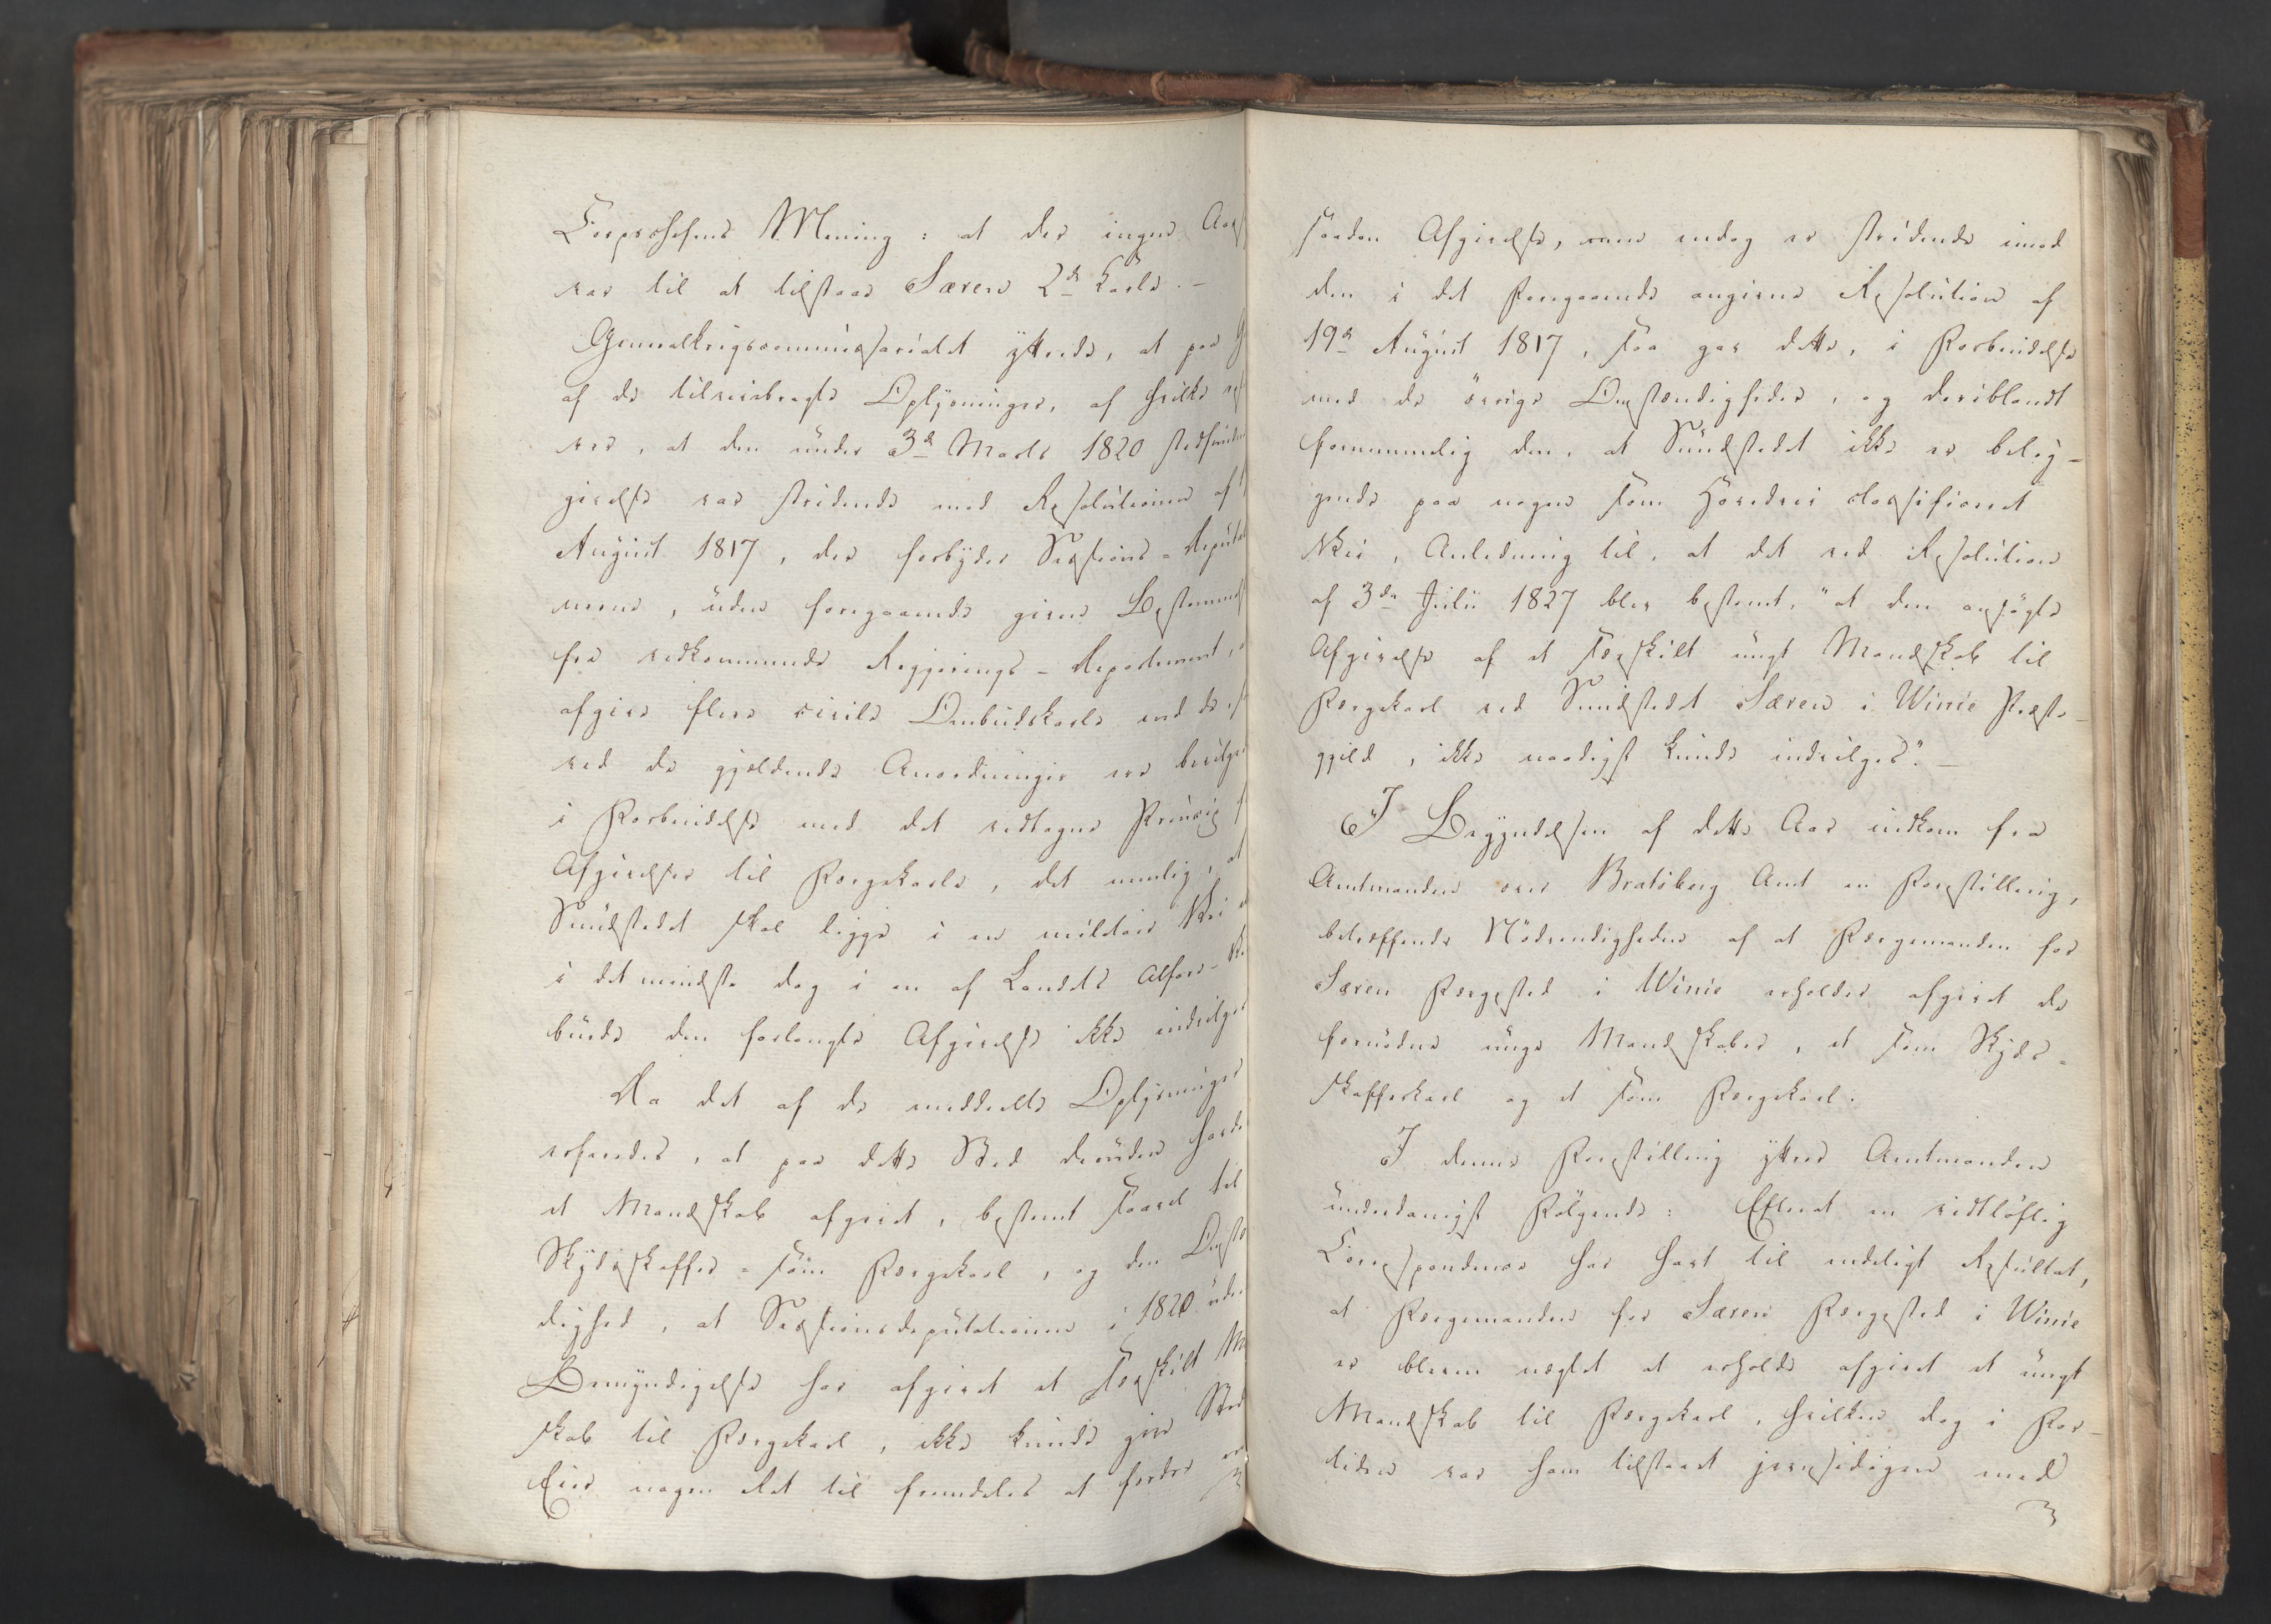 Corpschefens Mening: at der ingen Aars
var til at tilstaae Særen 2de Karle. –
Generalkrigscommissariatet yttrede, at paa G
af de tilveiebragte Oplysninger, af hvilke er
red, at den under 3de Marts 1820 stedfundne
givelse var stridende mod Resolutionen af
August 1817, der forbyder Sessions-Deputat
nerne, uden foregaaende given Bestemmels
fra vedkommende Regjerings-Departement,
afgive flere civile Ombudskarle end de
ved de gjeldende Anordninger ere bevilge
i Forbindelse med det vedtagne Princip
Afgivelser til Færgekarle, det nemlig, at
Sundstedet skal ligge i en militair Vei
i det mindste dog i en af Landets Alfare-Ve
burde den forlangte Afgivelse ikke indvilges
Da det af de meddeelte Oplysninger
erfaredes, at paa dette Sted desuden havde
et Mandskab afgivet, bestemt saavel til
Skydsskaffer- som Færgekarl, og den Omstæn
dighed, at Sessionsdeputationen i 1820 uden
Bemyndigelse har afgivet et særskilt Mand
skab til Færgekarl, ikke kunde give Stedets
Eier nogen Ret til fremdeles at fordre en
saadan Afgivelse, men endog er stridende imod
den i det Foregaaende angivne Resolution af
19de August 1817, saa gav dette, i Forbindelse
med de øvrige Omstændigheder, og deriblandt
fornemmelig den, at Sundstedet ikke er belig-
gende paa nogen som Hovedvei classificeret
Vei, Anledning til, at det ved Resolution
af 3de Julii 1827 blev bestemt, "at den ansøgte
Afgivelse af et særskilt ungt Mandskab til
Færgekarl ved Sundstedet Særen i Winie Præste-
gjeld, ikke naadigst kunde indvilges". –
I Begyndelsen af dette Aar indkom fra
Amtmanden over Bratsberg Amt en Forestilling,
betræffende Nødvendigheden af at Færgemanden for
Særen Færgested i Winie erholder afgivet de
fornødne unge Mandskaber, et som Skyds-
skafferkarl og et som Færgekarl.
I denne Forestilling yttrer Amtmanden
underdanigst Følgende: Efterat en vidtløftig
Correspondence har havt til endeligt Resultat,
at Færgemanden for Særen Færgested i Winie
er bleven nægtet at erholde afgivet et ungt
Mandskab til Færgekarl, hvilken dog i For-
tiden var ham tilstaaet jevnsidigen med